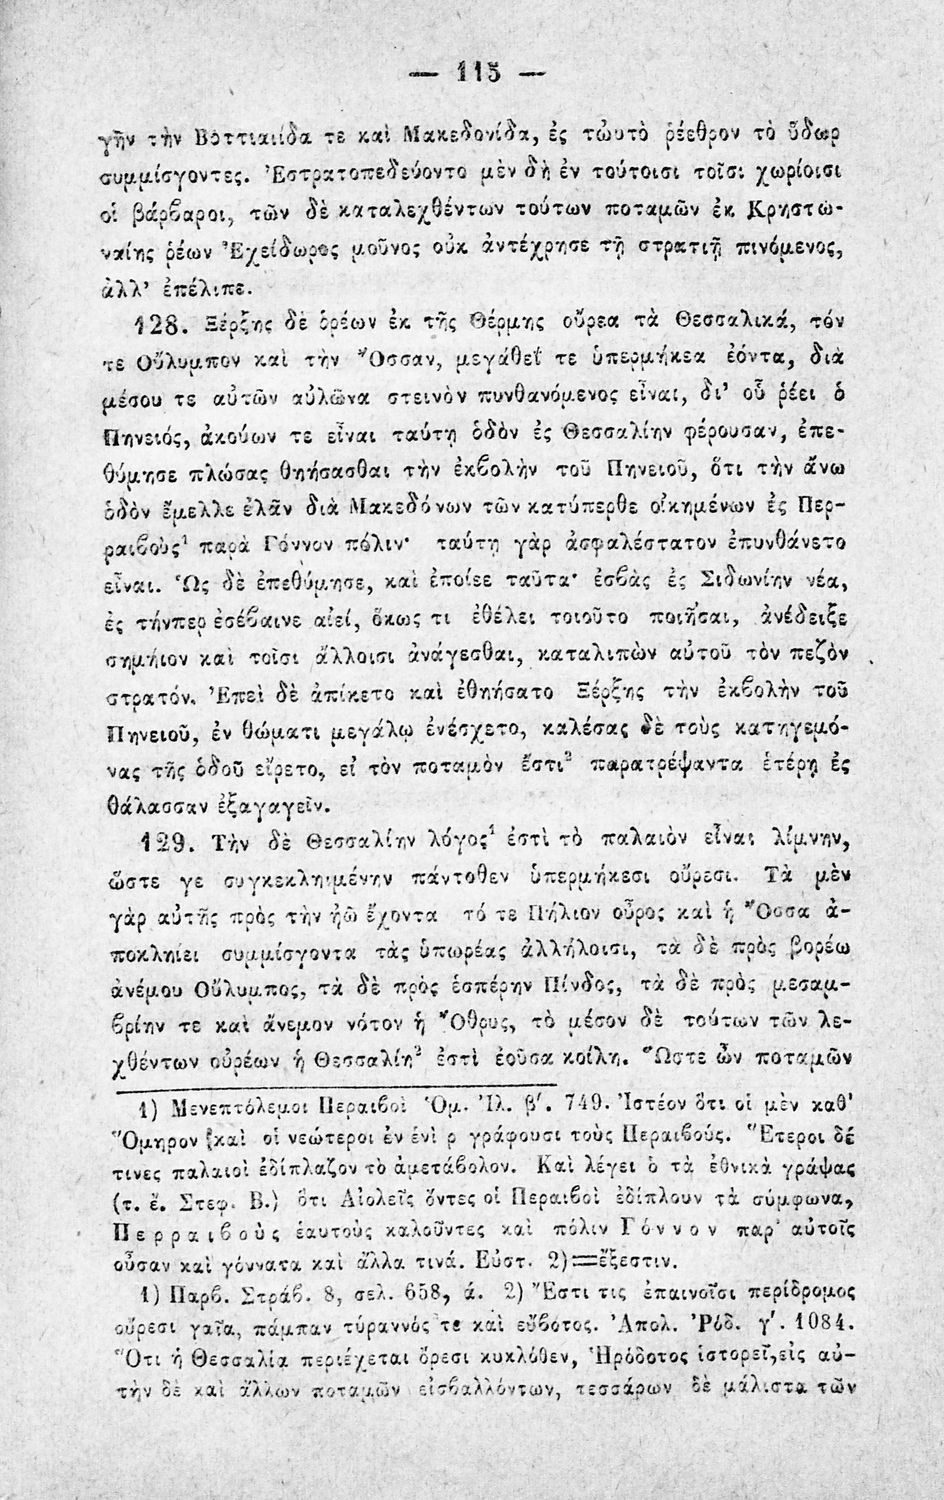 — 115 —
γῆν τὴν Βοττιαιίδα τε καὶ Μακεδονίδα, ἐς τὠυτὸ ῥέεθρον τὸ ὕδωρ
συμμίσγοντες. Ἐστρατοπεδεύοντο μὲν δὴ ἐν τούτοισι τοῖσι χωρίοισι
οἱ βάρβαροι, τῶν δὲ καταλεχθέντων τούτων ποταμῶν ἐκ Κρηστω-
ναίης ῥέων Ἐχείδωρος μοῦνος οὐκ ἀντέχρησε τῇ στρατιῇ πινόμενος,
ἀλλ' ἐπέλιπε.
128. Ξέρξης δὲ ὁρέων ἐκ τῆς Θέρμης οὔρεα τὰ Θεσσαλικά, τόν
τε Οὔλυμπον καὶ τὴν Ὄσσαν, μεγάθεΐ τε ὑπερμήκεα ἐόντα, διὰ
μέσου τε αὐτῶν αὐλῶνα στεινὸν πυνθανόμενος εἶναι, δι' οὗ ῥέει ὁ
Πηνειός, ἀκούων τε εἶναι ταύτῃ ὁδὸν ἐς Θεσσαλίην φέρουσαν, ἐπε-
θύμησε πλώσας θηήσασθαι τὴν ἐκβολὴν τοῦ Πηνειοῦ, ὅτι τὴν ἄνω
ὁδὸν ἔμελλε ἐλᾶν διὰ Μακεδόνων τῶν κατύπερθε οἰκημένων ἐς Περ-
ραιβοὺς¹ παρὰ Γόννον πόλιν· ταύτῃ γὰρ ἀσφαλέστατον ἐπυνθάνετο
εἶναι. Ὡς δὲ ἐπεθύμησε, καὶ ἐποίεε ταῦτα· ἐσβὰς ἐς Σιδωνίην νέα,
ἐς τήνπερ ἐσέβαινε αἰεί, ὅκως τι ἐθέλει τοιοῦτο ποιῆσαι, ἀνέδειξε
σημήιον καὶ τοῖσι ἄλλοισι ἀνάγεσθαι, καταλιπὼν αὐτοῦ τὸν πεζὸν
στρατόν. Ἐπεὶ δὲ ἀπίκετο καὶ ἐθηήσατο Ξέρξης τὴν ἐκβολὴν τοῦ
Πηνειοῦ, ἐν θώματι μεγάλῳ ἐνέσχετο, καλέσας δὲ τοὺς κατηγεμό-
νας τῆς ὁδοῦ εἴρετο, εἰ τὸν ποταμὸν ἔστι² παρατρέψαντα ἑτέρῃ ἐς
θάλασσαν ἐξαγαγεῖν.
129. Τὴν δὲ Θεσσαλίην λόγος¹ ἐστὶ τὸ παλαιὸν εἶναι λίμνην,
ὥστε γε συγκεκληιμένην πάντοθεν ὑπερμήκεσι οὔρεσι. Τὰ μὲν
γὰρ αὐτῆς πρὸς τὴν ἠῶ ἔχοντα τό τε Πήλιον οὖρος καὶ ἡ Ὄσσα ἀ-
ποκληίει συμμίσγοντα τὰς ὑπωρέας ἀλλήλοισι, τὰ δὲ πρὸς βορέω
ἀνέμου Οὔλυμπος, τὰ δὲ πρὸς ἑσπέρην Πίνδος, τὰ δὲ πρὸς μεσαμ-
βρίην τε καὶ ἄνεμον νότον ἡ Ὄθρυς, τὸ μέσον δὲ τούτων τῶν λε-
χθέντων οὐρέων ἡ Θεσσαλίη² ἐστὶ ἐοῦσα κοίλη. Ὥστε ὦν ποταμῶν
1) Μενεπτόλεμοι Περαιβοὶ Ὁμ. Ἰλ. β'. 749. Ἰστέον ὅτι οἱ μὲν καθ'
Ὅμηρον καὶ οἱ νεώτεροι ἐν ἑνὶ ρ γράφουσι τοὺς Περαιβούς. Ἕτεροι δέ
τινες παλαιοὶ ἐδίπλαζον τὸ ἀμετάβολον. Καὶ λέγει ὁ τὰ ἐθνικὰ γράψας
(τ. ἔ. Στεφ. Β.) ὅτι Αἰολεῖς ὄντες οἱ Περαιβοὶ ἐδίπλουν τὰ σύμφωνα,
Περραιβοὺς ἑαυτοὺς καλοῦντες καὶ πόλιν Γόννον παρ' αὐτοῖς
οὖσαν καὶ γόννατα καὶ ἄλλα τινά. Εὐστ. 2)=ἔξεστιν.
1) Παρβ. Στράβ. 8, σελ. 658, ά. 2) Ἔστι τις ἐπαινοῖσι περίδρομος
οὔρεσι γαῖα, πάμπαν τύραννός τε καὶ εὔβοτος. Ἀπολ. Ῥόδ. γ'. 1084.
Ὅτι ἡ Θεσσαλία περιέχεται ὄρεσι κυκλόθεν, Ἡρόδοτος ἱστορεῖ, εἰς αὐ-
τὴν δὲ καὶ ἄλλων ποταμῶν εἰσβαλλόντων, τεσσάρων δὲ μάλιστα τῶν